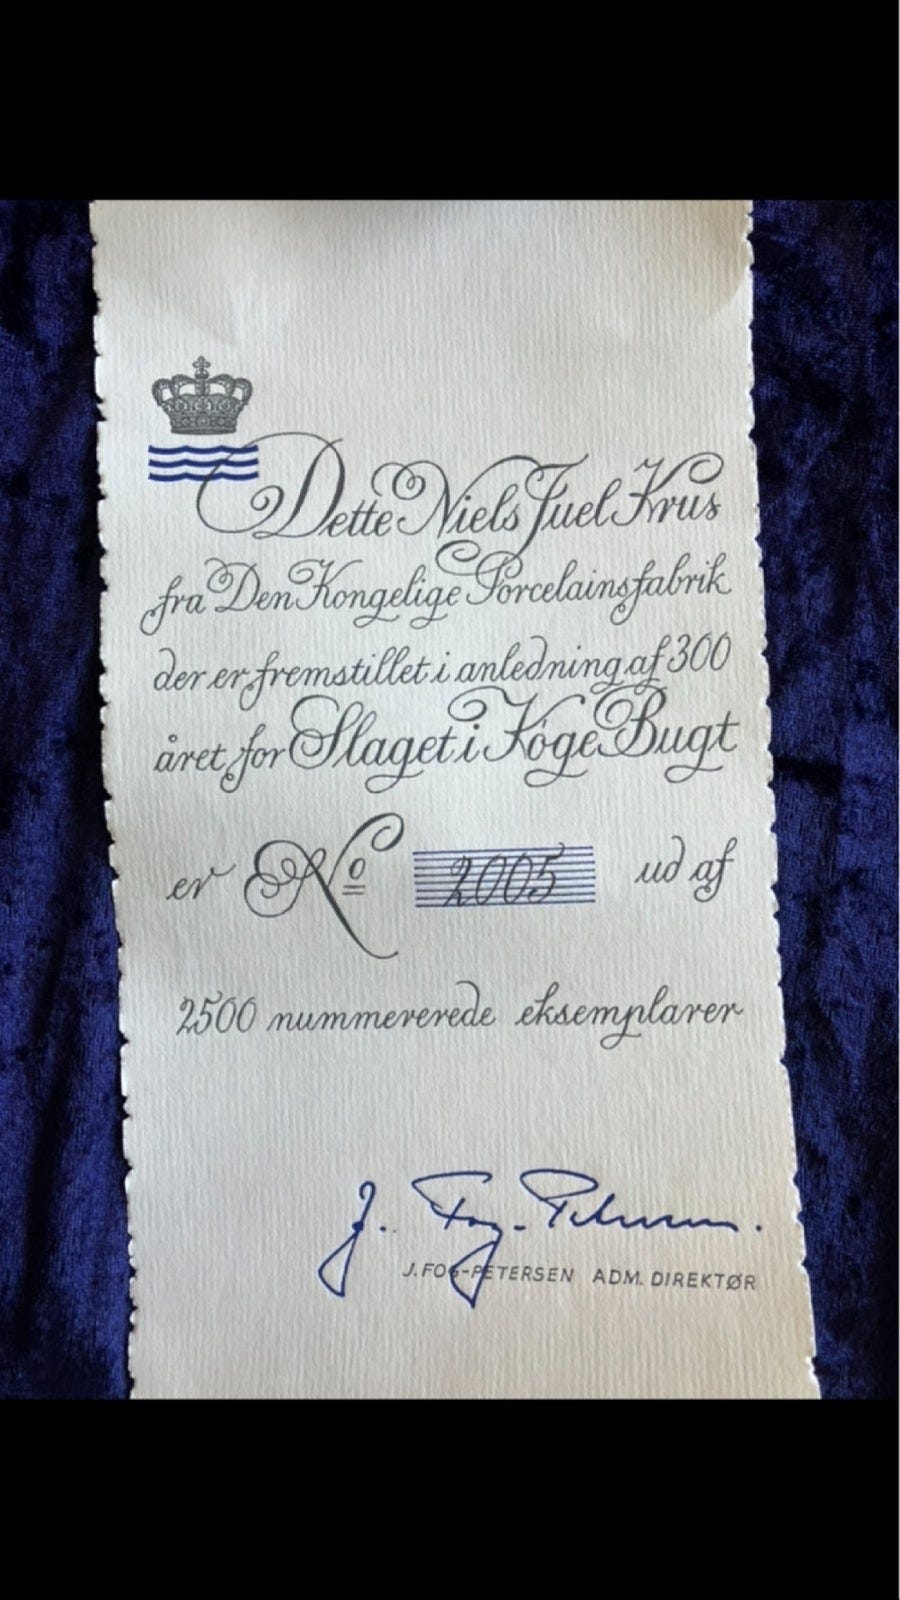 Dette Niels Juel Krus
fra Den Kongelige Porcelainsfabrik
der er fremstillet i anledning af 300
året for Slaget i Køge Bugt
er No 2005 ud af
2500 nummererede eksemplarer
J. Fog-Petersen.
J. FOG-PETERSEN ADM. DIREKTØR